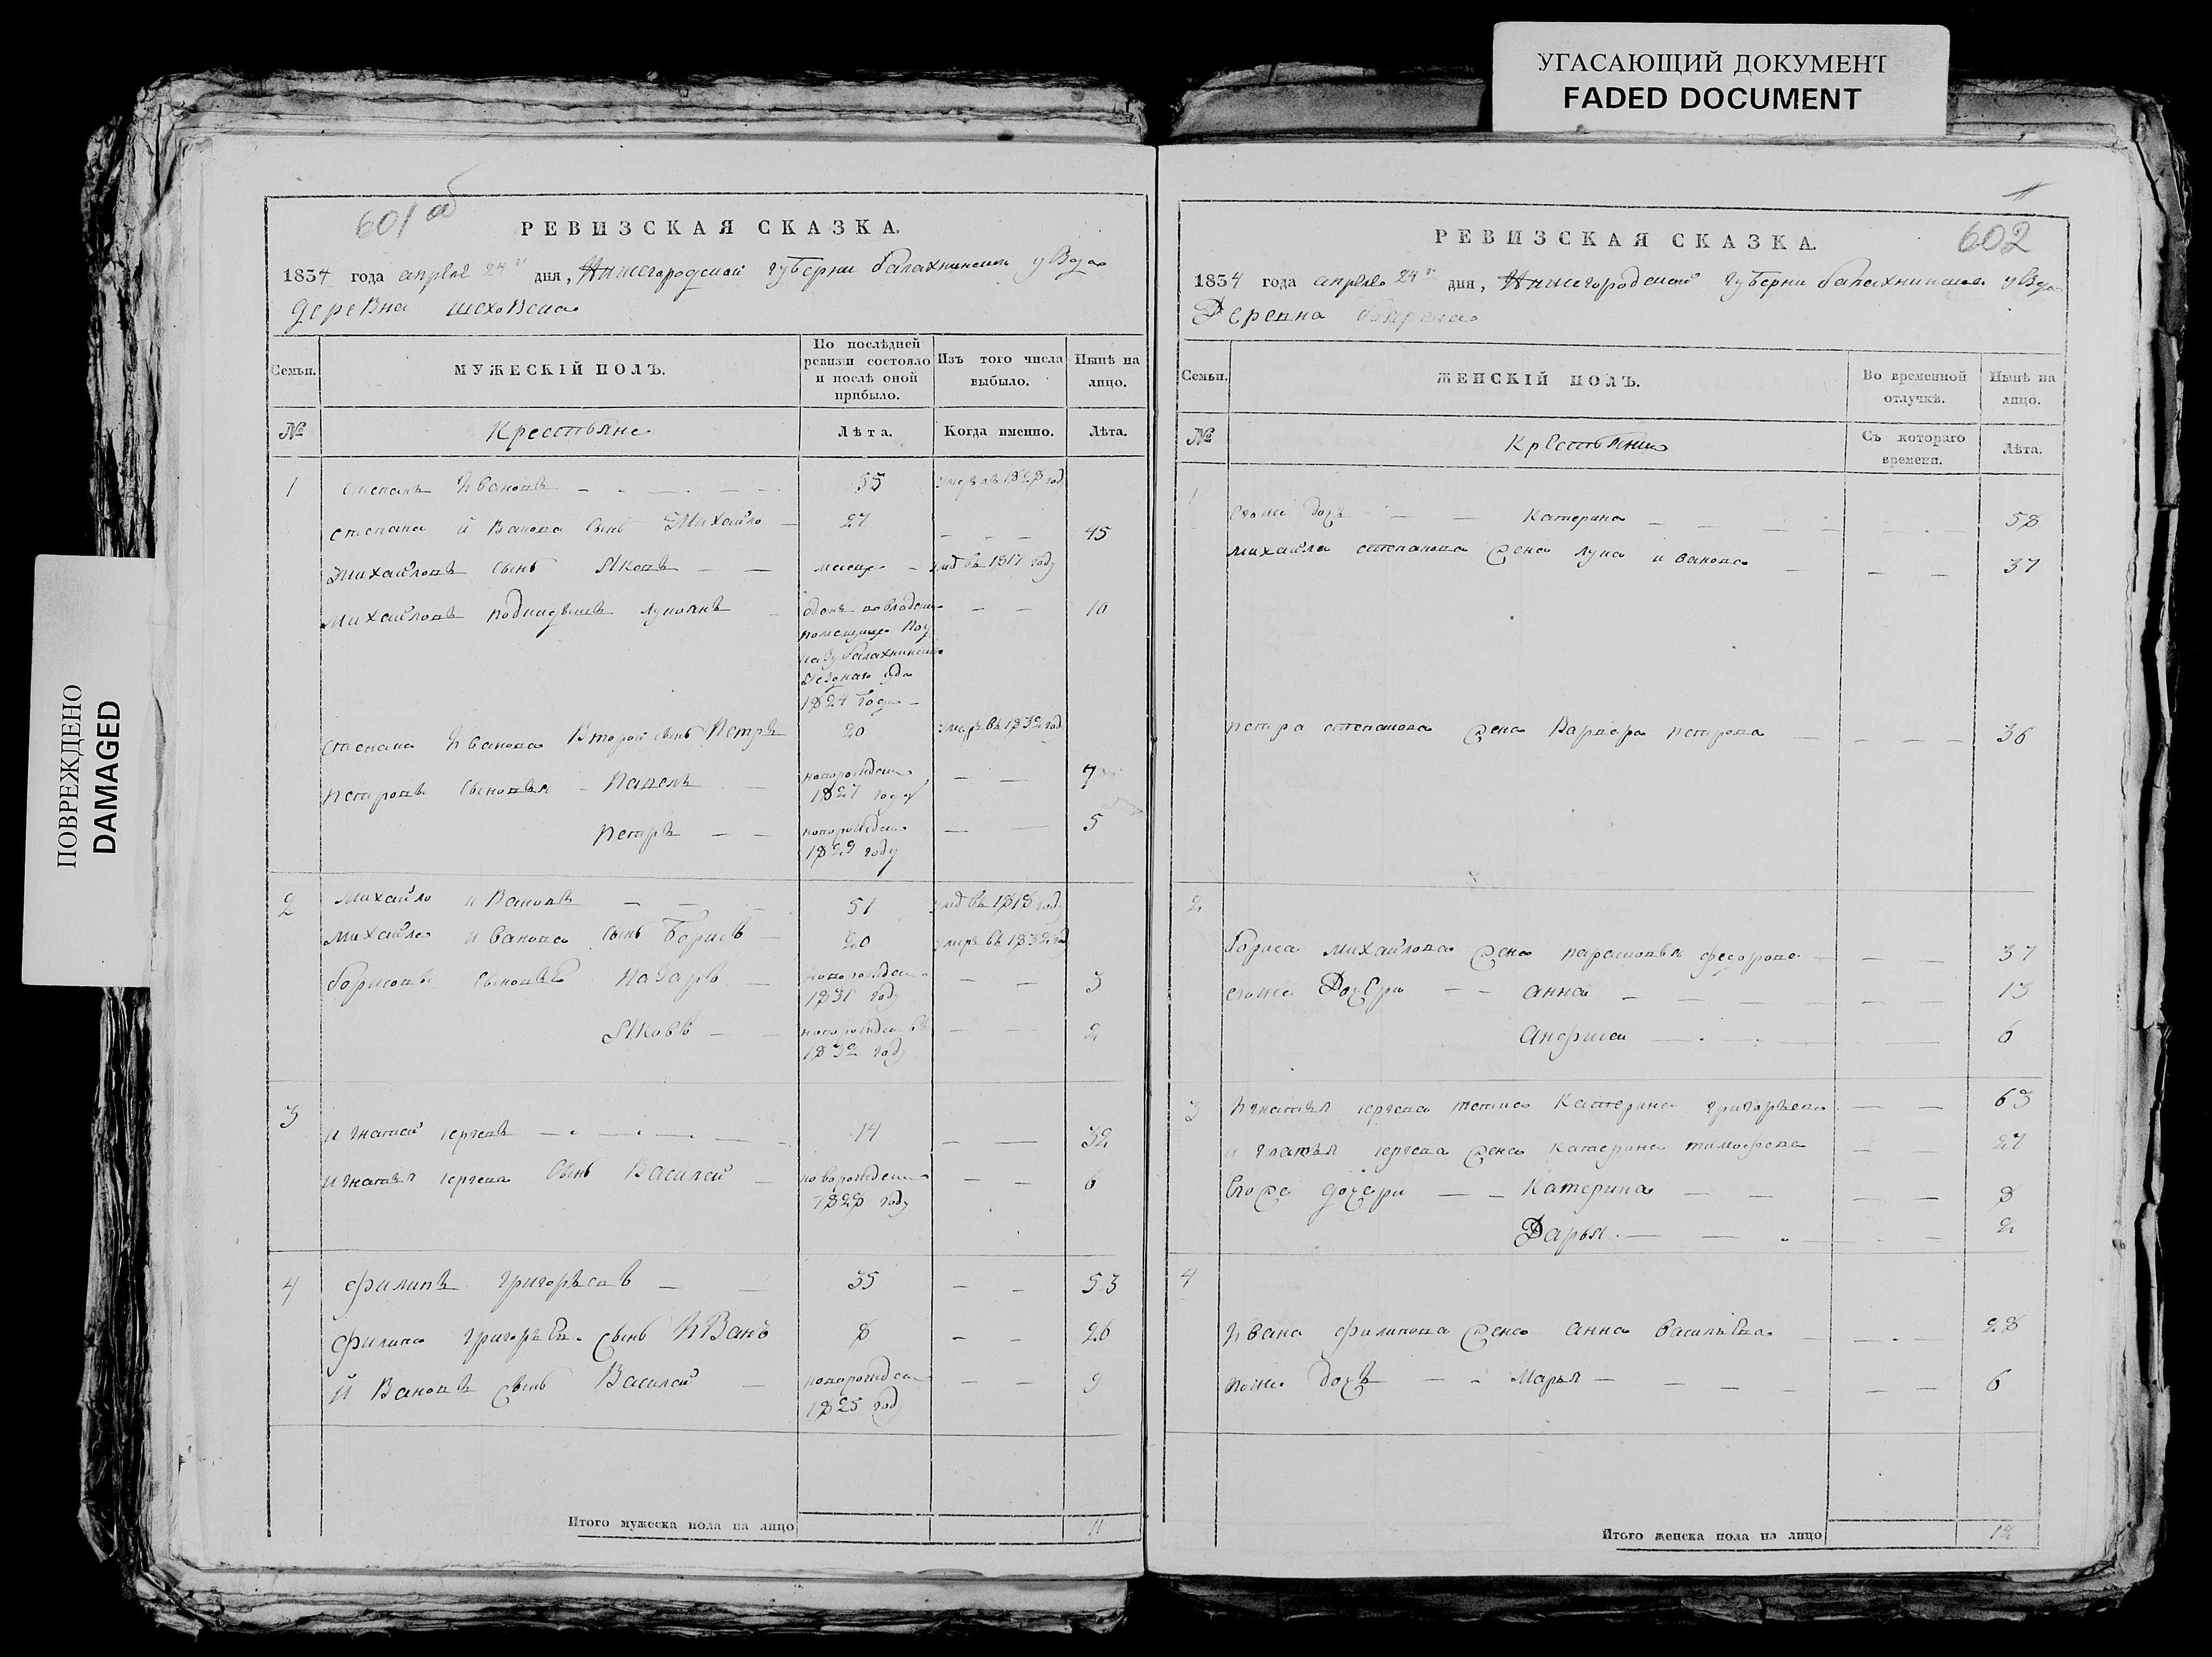 УГАСАЮЩИЙ ДОКУМЕНТ
FADED DOCUMENT
ПОВРЕЖДЕНО
DAMAGED
601 об
РЕВИЗСКАЯ СКАЗКА.
1834 года апреля 24 дня, Нижегородской губерни балахнинска уѣзда
деревна
Семьи. МУЖЕСКІЙ ПОЛЪ. По послѣдней ревизіи состояло и послѣ оной прибыло. Изъ того числа выбыло. Нынѣ на лицо.
№ Крестьяне Лѣта. Когда именно. Лѣта.
1 степанъ Ивановъ 55 умеръ въ 1828 год
степана Иванова сынъ Михайло 27 45
Михайловъ сынъ Яковъ въ 1817 году
Михайловъ 10
балахнинска
1824 года
степана Иванова Второй сынъ Петръ 20 умеръ въ 1832 год
петровы сыновья Павелъ новорожден 7
1827 году
петръ новорожден 5
1829 году
2 михайло Ивановъ 51 въ 1818 году
михайла Иванова сынъ Борисъ 20 умеръ въ 1832 год
борисовы сыновьѣ Назаръ новорожден 3
1831 году
Яковъ новорожден въ 2
1832 году
3 игнатей сергеевъ 14 32
игнатья сергеева сынъ Василей новорожден 6
1828 году
4 филипъ григорьевъ 35 53
филипа григорьева сынъ Иванъ 8 26
Ивановъ сынъ Василей новорожден 9
1825 году
Итого мужеска пола на лицо 11
602
РЕВИЗСКАЯ СКАЗКА.
1834 года апреля 24 дня, Нижегородской губерни балахнинска уѣзда
Деревна
Семьи. ЖЕНСКІЙ ПОЛЪ. Во временной отлучкѣ. Нынѣ на лицо.
№ Крестьянки Съ котораго времени. Лѣта.
1 его же дочь Катерина 58
михайла степанова жена иванова 37
петра степанова жена Варвара петрова 36
2
бориса михайлова жена парасковья федорова 37
его же Дочери анна 13
Анфиса 6
3 Игнатья сергеева Катерина григорьева 63
игнатья сергеева жена катерина тимофеева 27
его же дочери Катерина 8
Дарья 2
4
Ивана филипова жена анна васильева 28
дочь Марья 6
Итого женска пола на лицо 12